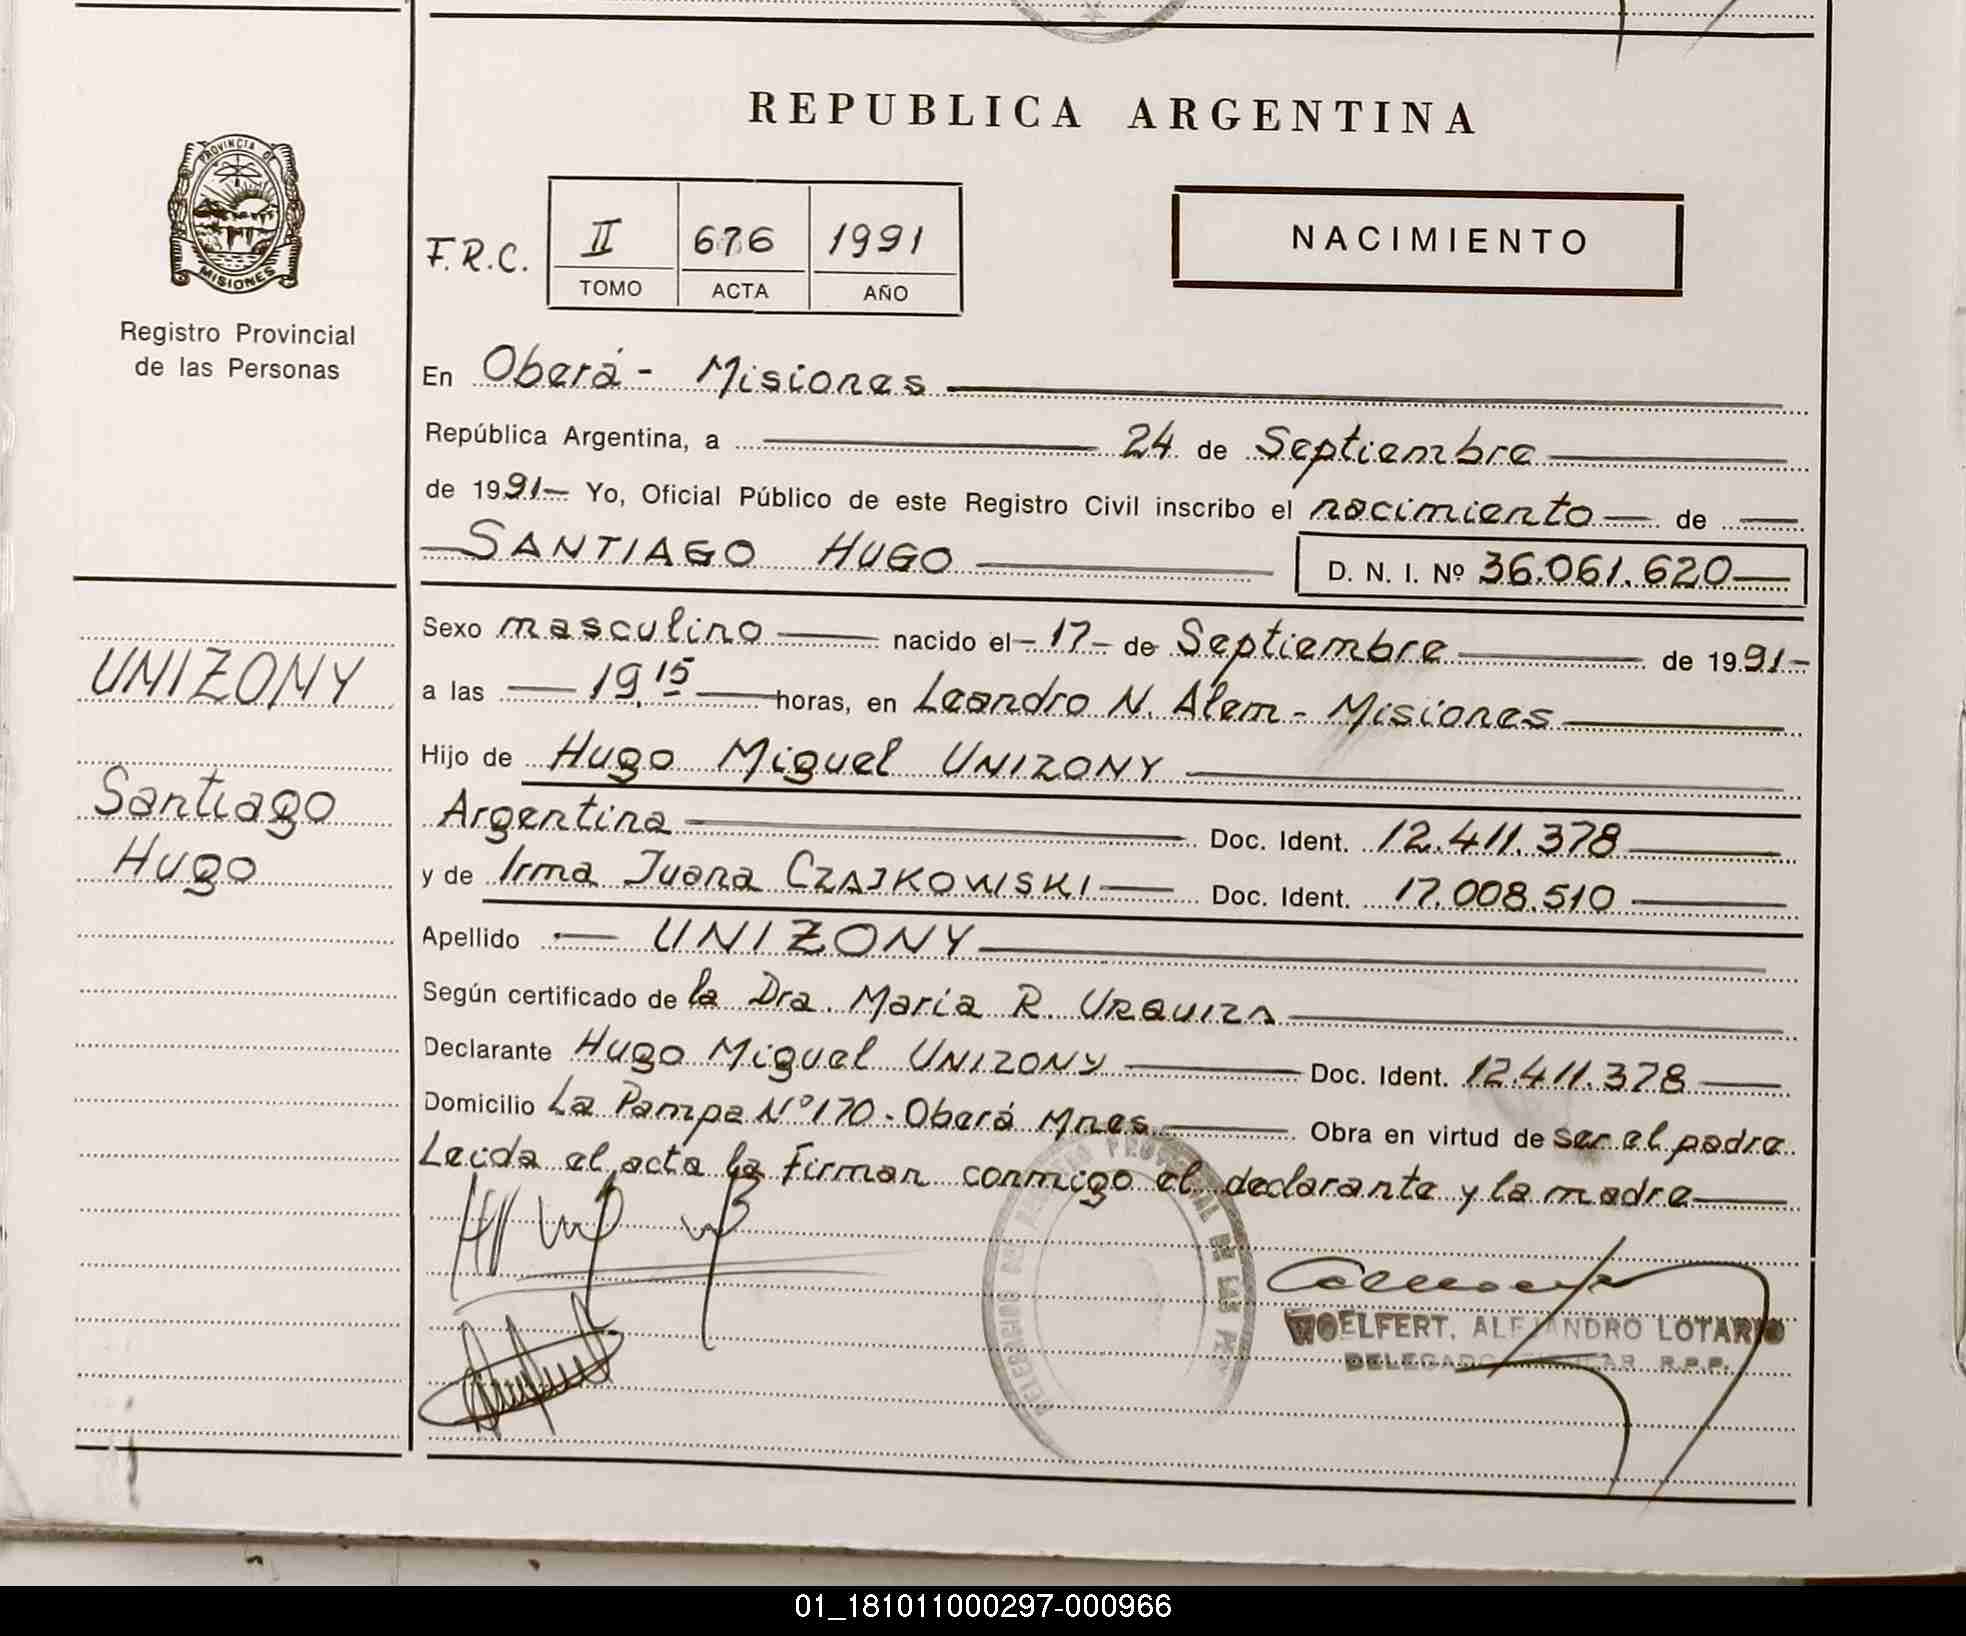 REPUBLICA ARGENTINA
PROVINCIA DE
MISIONES
Registro Provincial
de las Personas
F.R.C.
II 676 1991
TOMO ACTA AÑO
NACIMIENTO
En Oberá - Misiones
República Argentina, a 24 de Septiembre
de 1991- Yo, Oficial Público de este Registro Civil inscribo el nacimiento de
SANTIAGO HUGO D. N. I. Nº 36.061.620
Sexo masculino nacido el - 17 - de Septiembre de 1991-
a las 19,15 horas, en Leandro N. Alem - Misiones
Hijo de Hugo Miguel UNIZONY
Argentina Doc. Ident. 12.411.378
y de Irma Juana CZAJKOWSKI Doc. Ident. 17.008.510
Apellido UNIZONY
Según certificado de la Dra. Maria R. URQUIZA
Declarante Hugo Miguel UNIZONY Doc. Ident. 12.411.378
Domicilio La Pampa Nº 170 - Oberá Mnes. Obra en virtud de ser el padre
Leida el acta la Firman conmigo el declarante y la madre
UNIZONY
Santiago
Hugo
WOELFERT, ALEJANDRO LOTARIO
DELEGADO R.P.P.
01_181011000297-000966